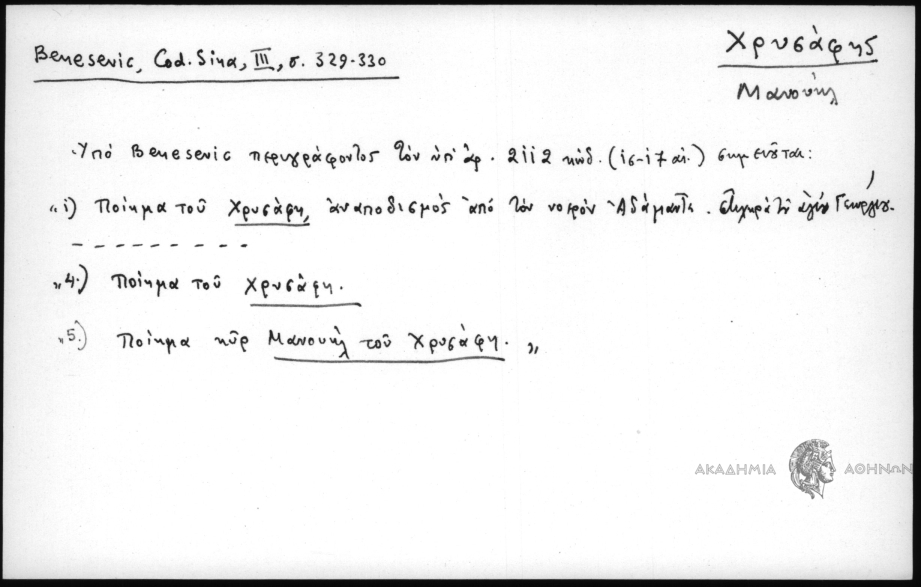 Benesevic, Cod. Sina, III, σ. 329-330
Χρυσάφης
Μανουήλ
Ὑπό Benesevic περιγράφοντος τόν ὑπ' ἀρ. 2112 κώδ. (ις-17 αἰ.) σημειοῦται:
„1) Ποίημα τοῦ Χρυσάφη, ἀναποδισμός ἀπό τόν Ἀδάμαντα. στιχηρὰ τοῦ ἁγίου Γεωργίου.
- - - - - - - - -
„4.) Ποίημα τοῦ Χρυσάφη.
„5.) Ποίημα κῦρ Μανουὴλ τοῦ Χρυσάφη. „
ΑΚΑΔΗΜΙΑ ΑΘΗΝΩΝ